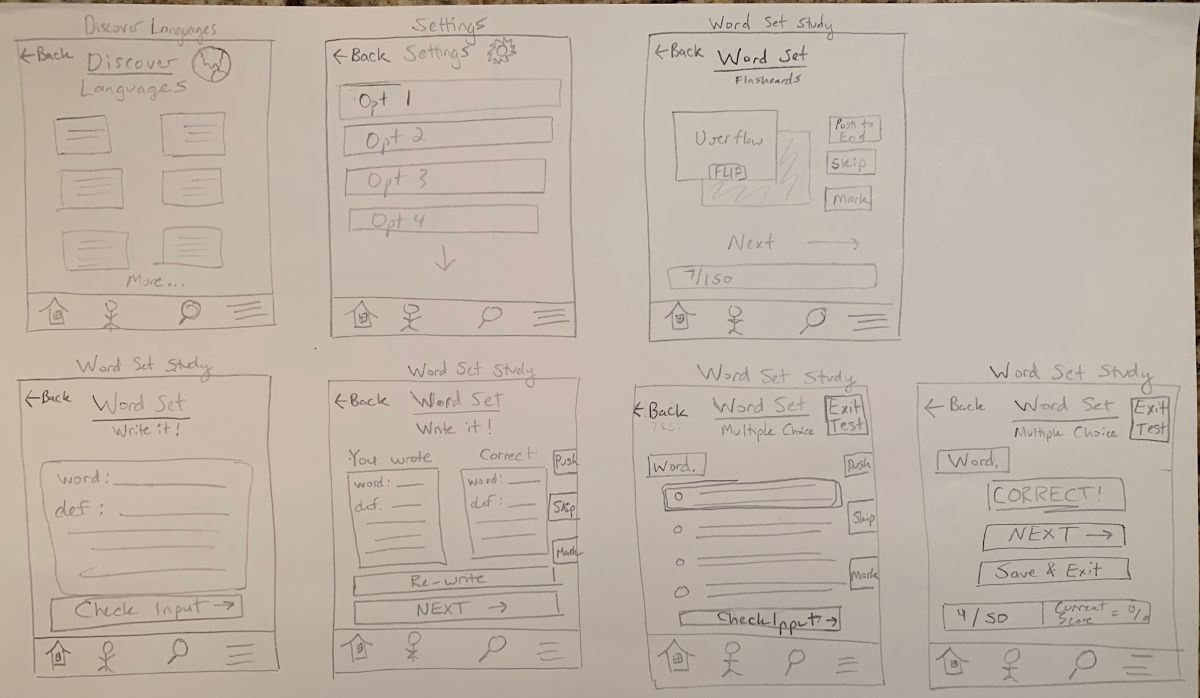 Discover Languages
← Back
Discover
Languages
More...
Settings
← Back Settings
Opt 1
Opt 2
Opt 3
Opt 4
Word Set Study
← Back Word Set
Flashcards
FLIP
Push to
End
Skip
Mark
Next →
7/150
Word Set Study
← Back
Word Set
Write it!
word:
def:
Check Input →
Word Set Study
← Back Word Set
Write it!
You wrote
word:
def.
Correct
word:
def:
Push
Skip
Mark
Re-write
NEXT →
Word Set Study
← Back
Test
Word Set
Multiple Choice
Exit
Test
Word.
Push
Skip
Mark
Check Input →
Word Set Study
← Back
Word Set
Multiple Choice
Exit
Test
Word.
CORRECT!
NEXT →
Save & Exit
4/50
Current
Score = %